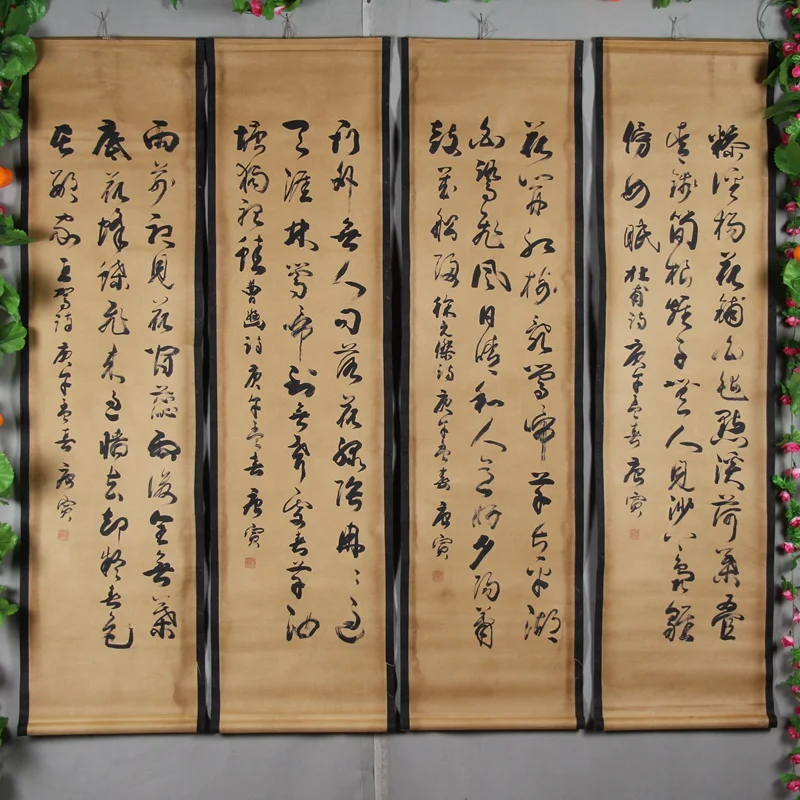 糝徑楊花鋪白氈點溪荷葉疊
青錢筍根稚子無人見沙上鳧雛
傍母眠 杜甫詩 庚午孟春 唐寅
花開紅樹亂鶯啼草長平湖
白鷺飛風日晴和人意好夕陽簫
鼓幾船歸 徐元傑詩 庚午孟春 唐寅
門外無人問落花綠陰冉々遍
天涯林鶯啼到無聲處青草池
塘獨聽蛙 曹豳詩 庚午孟春 唐寅
雨前初見花間蕊雨後全無葉
底花蜂蝶飛來過牆去卻疑春色
在鄰家 王駕詩 庚午孟春 唐寅